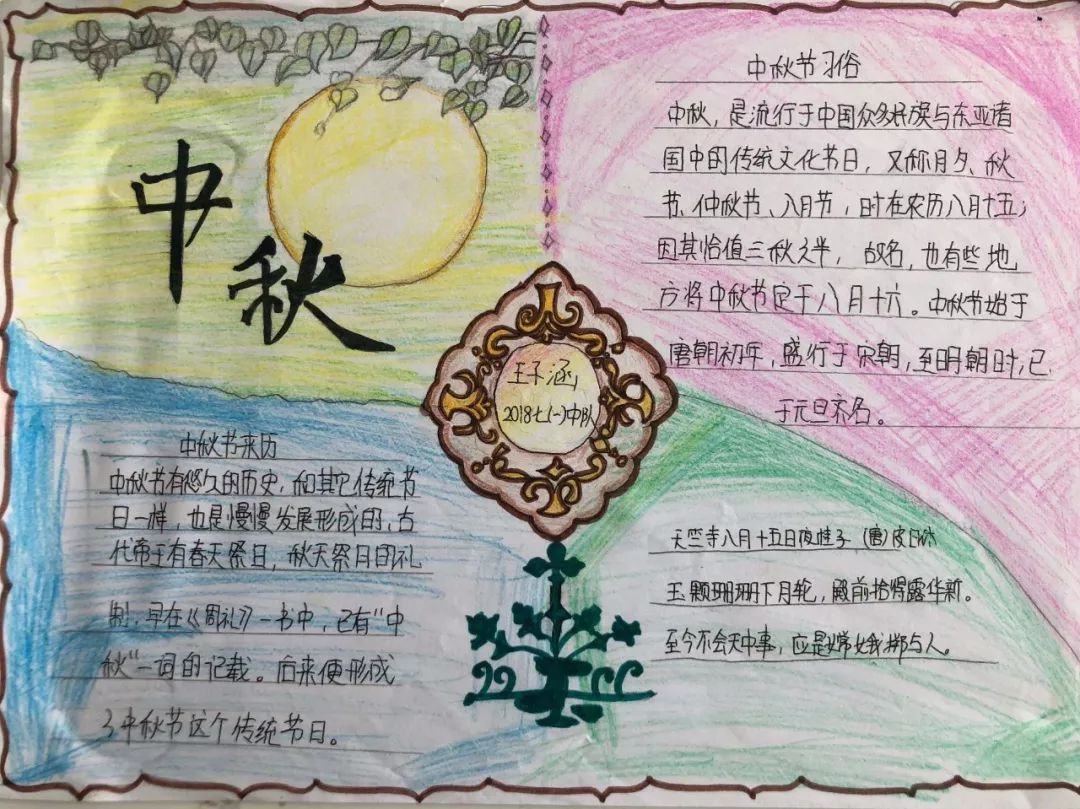 中秋
中秋节习俗
中秋，是流行于中国众多民族与东亚诸
国中的传统文化节日，又称月夕、秋
节、仲秋节、八月节，时在农历八月十五；
因其恰值三秋之半，故名，也有些地
方将中秋节定于八月十六。中秋节始于
唐朝初年，盛行于宋朝，至明朝时，已
于元旦齐名。
王子涵
2018七(一)中队
中秋节来历
中秋节有悠久的历史，和其它传统节
日一样，也是慢慢发展形成的，古
代帝王有春天祭日，秋天祭月的礼
制，早在《周礼》一书中，已有“中
秋”一词的记载。后来便形成
了中秋节这个传统节日。
天竺寺八月十五日夜桂子 (唐)皮日休
玉颗珊珊下月轮，殿前拾得露华新。
至今不会天中事，应是嫦娥掷与人。